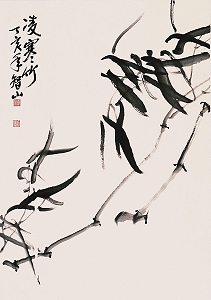 凌寒竹
丁亥年智山